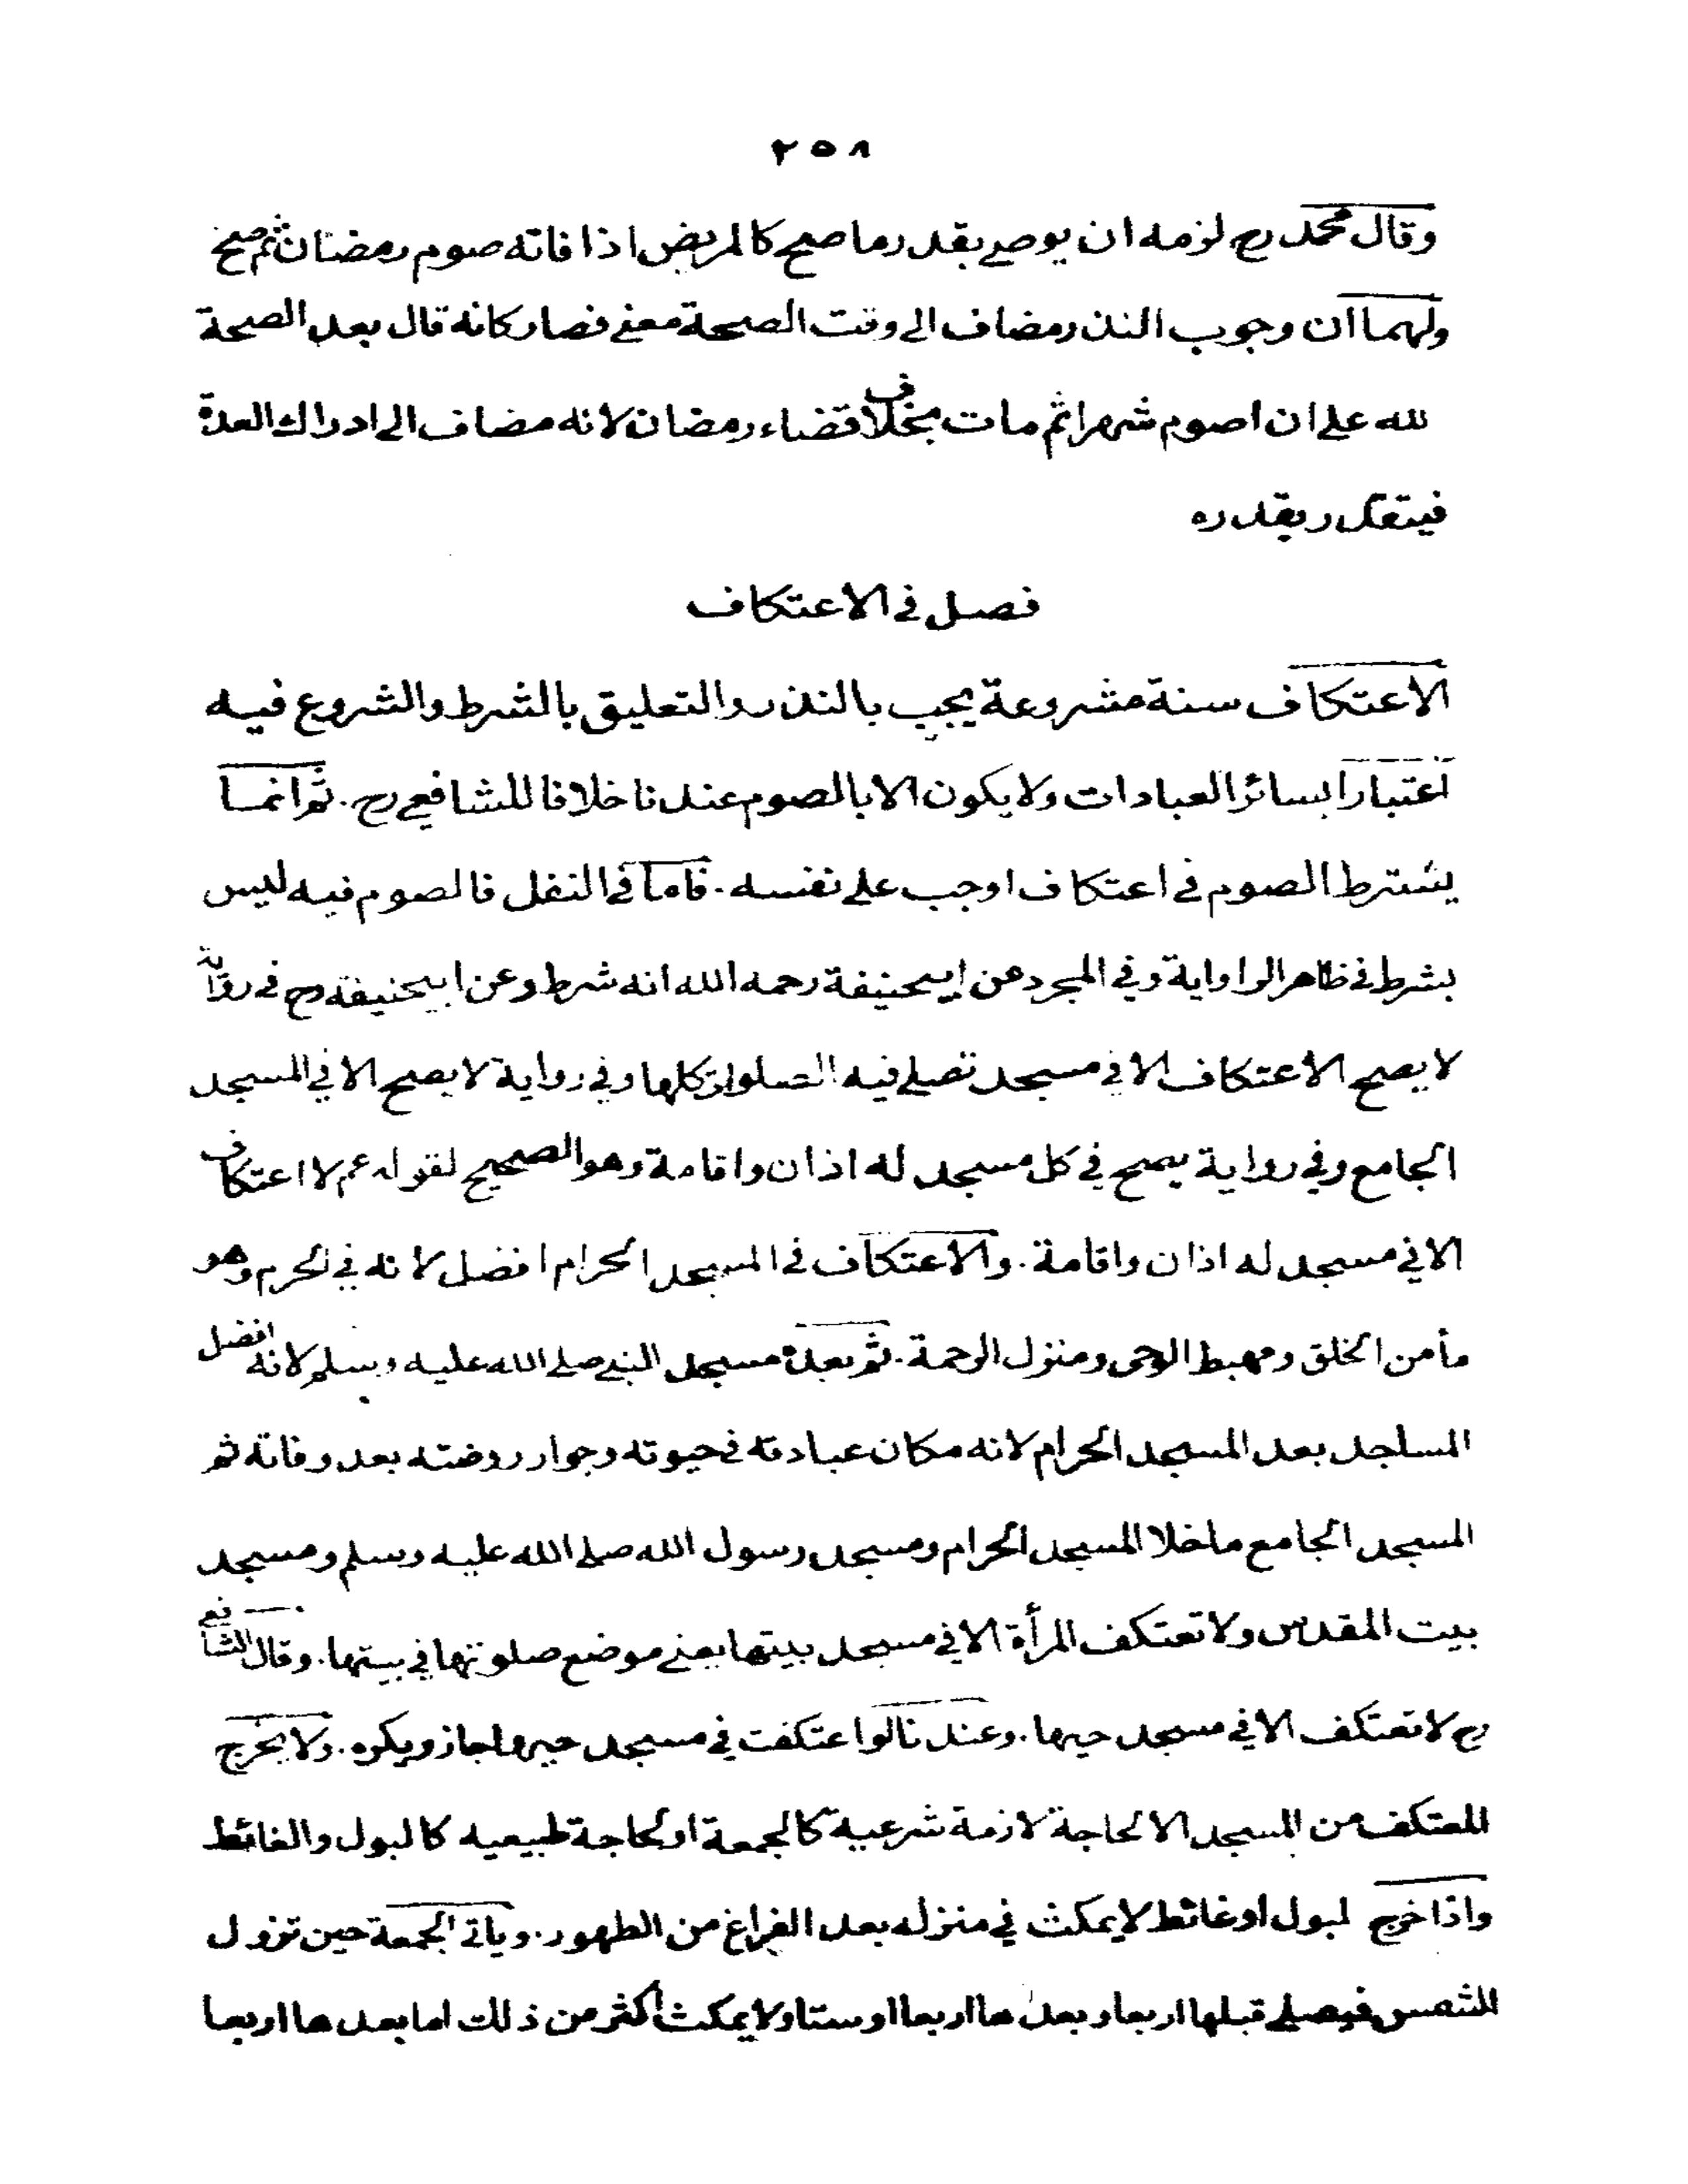 ٢٥٨
وقال محمد رح لزمه ان يوصے بقدر ما صح كالمريض اذا فاته صوم رمضان ثم صح
ولهما ان وجوب النذر مضاف الے وقت الصحة معنے فصار كانه قال بعد الصحة
لله علے ان اصوم شهرا ثم مات بخلاف قضاء رمضان لانه مضاف الے ادراك العدة
فيتقدر بقدره
فصل في الاعتكاف
الاعتكاف سنة مشروعة يجب بالنذر والتعليق بالشرط والشروع فيه
اعتبارا بسائر العبادات ولا يكون الا بالصوم عندنا خلافا للشافعے رح. ثم انما
يشترط الصوم في اعتكاف اوجب علے نفسه. فاما في النفل فالصوم فيه ليس
بشرط في ظاهر الراواية وفي المجرد عن ابيحنيفة رحمه الله انه شرط وعن ابيحنيفة رح في رواية
لا يصح الاعتكاف الا في مسجد تصلے فيه الصلوات كلها وفي رواية لا يصح الا في المسجد
الجامع وفي رواية يصح في كل مسجد له اذان واقامة وهو الصحيح لقوله عم لا اعتكاف
الا في مسجد له اذان واقامة. والاعتكاف في المسجد الحرام افضل لانه في الحرم وهو
مأمن الخلق ومهبط الوحى ومنزل الرحمة. ثم بعده مسجد النبے صلے الله عليه وسلم لانه افضل
المساجد بعد المسجد الحرام لانه مكان عبادته في حيوته وجوار روضته بعد وفاته ثم
المسجد الجامع ما خلا المسجد الحرام ومسجد رسول الله صلے الله عليه وسلم ومسجد
بيت المقدس ولا تعتكف المرأة الا في مسجد بيتها يعنے موضع صلوتها في بيتها. وقال الشافعے
رح لا تعتكف الا في مسجد حيها. وعندنا لو اعتكفت في مسجد حيها جاز ويكره. ولا يخرج
المعتكف من المسجد الا لحاجة لازمة شرعية كالجمعة او لحاجة طبيعيه كالبول والغائط
واذا خرج لبول او غائط لا يمكث في منزله بعد الفراغ من الطهور. وياتے الجمعة حين تزول
الشمس فيصلے قبلها اربعا وبعدها اربعا او ستا ولا يمكث اكثر من ذلك اما بعدها اربعا